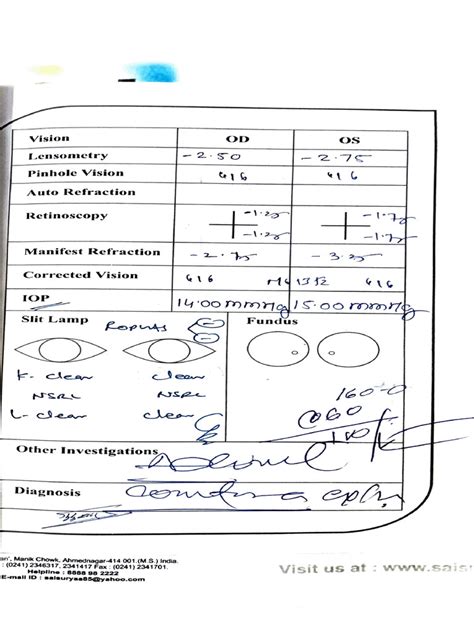 Vision OD OS
Lensometry -2.50 -2.75
Pinhole Vision 6/6 6/6
Auto Refraction
Retinoscopy -1.25 -1.75
-1.25 -1.75
Manifest Refraction -2.75 -3.25
Corrected Vision 6/6 6/6
IOP 14.00 mmHg 15.00 mmHg
Slit Lamp ROPLAS Fundus
K- clear clear
NSRL NSRL
L- clear clear
Other Investigations
Diagnosis
an', Manik Chowk, Ahmednagar-414 001.(M.S.) India.
: (0241) 2346317, 2341417 Fax : (0241) 2341701.
Helpline : 8888 98 2222
E-mail ID : saisuryas85@yahoo.com
Visit us at : www.sais